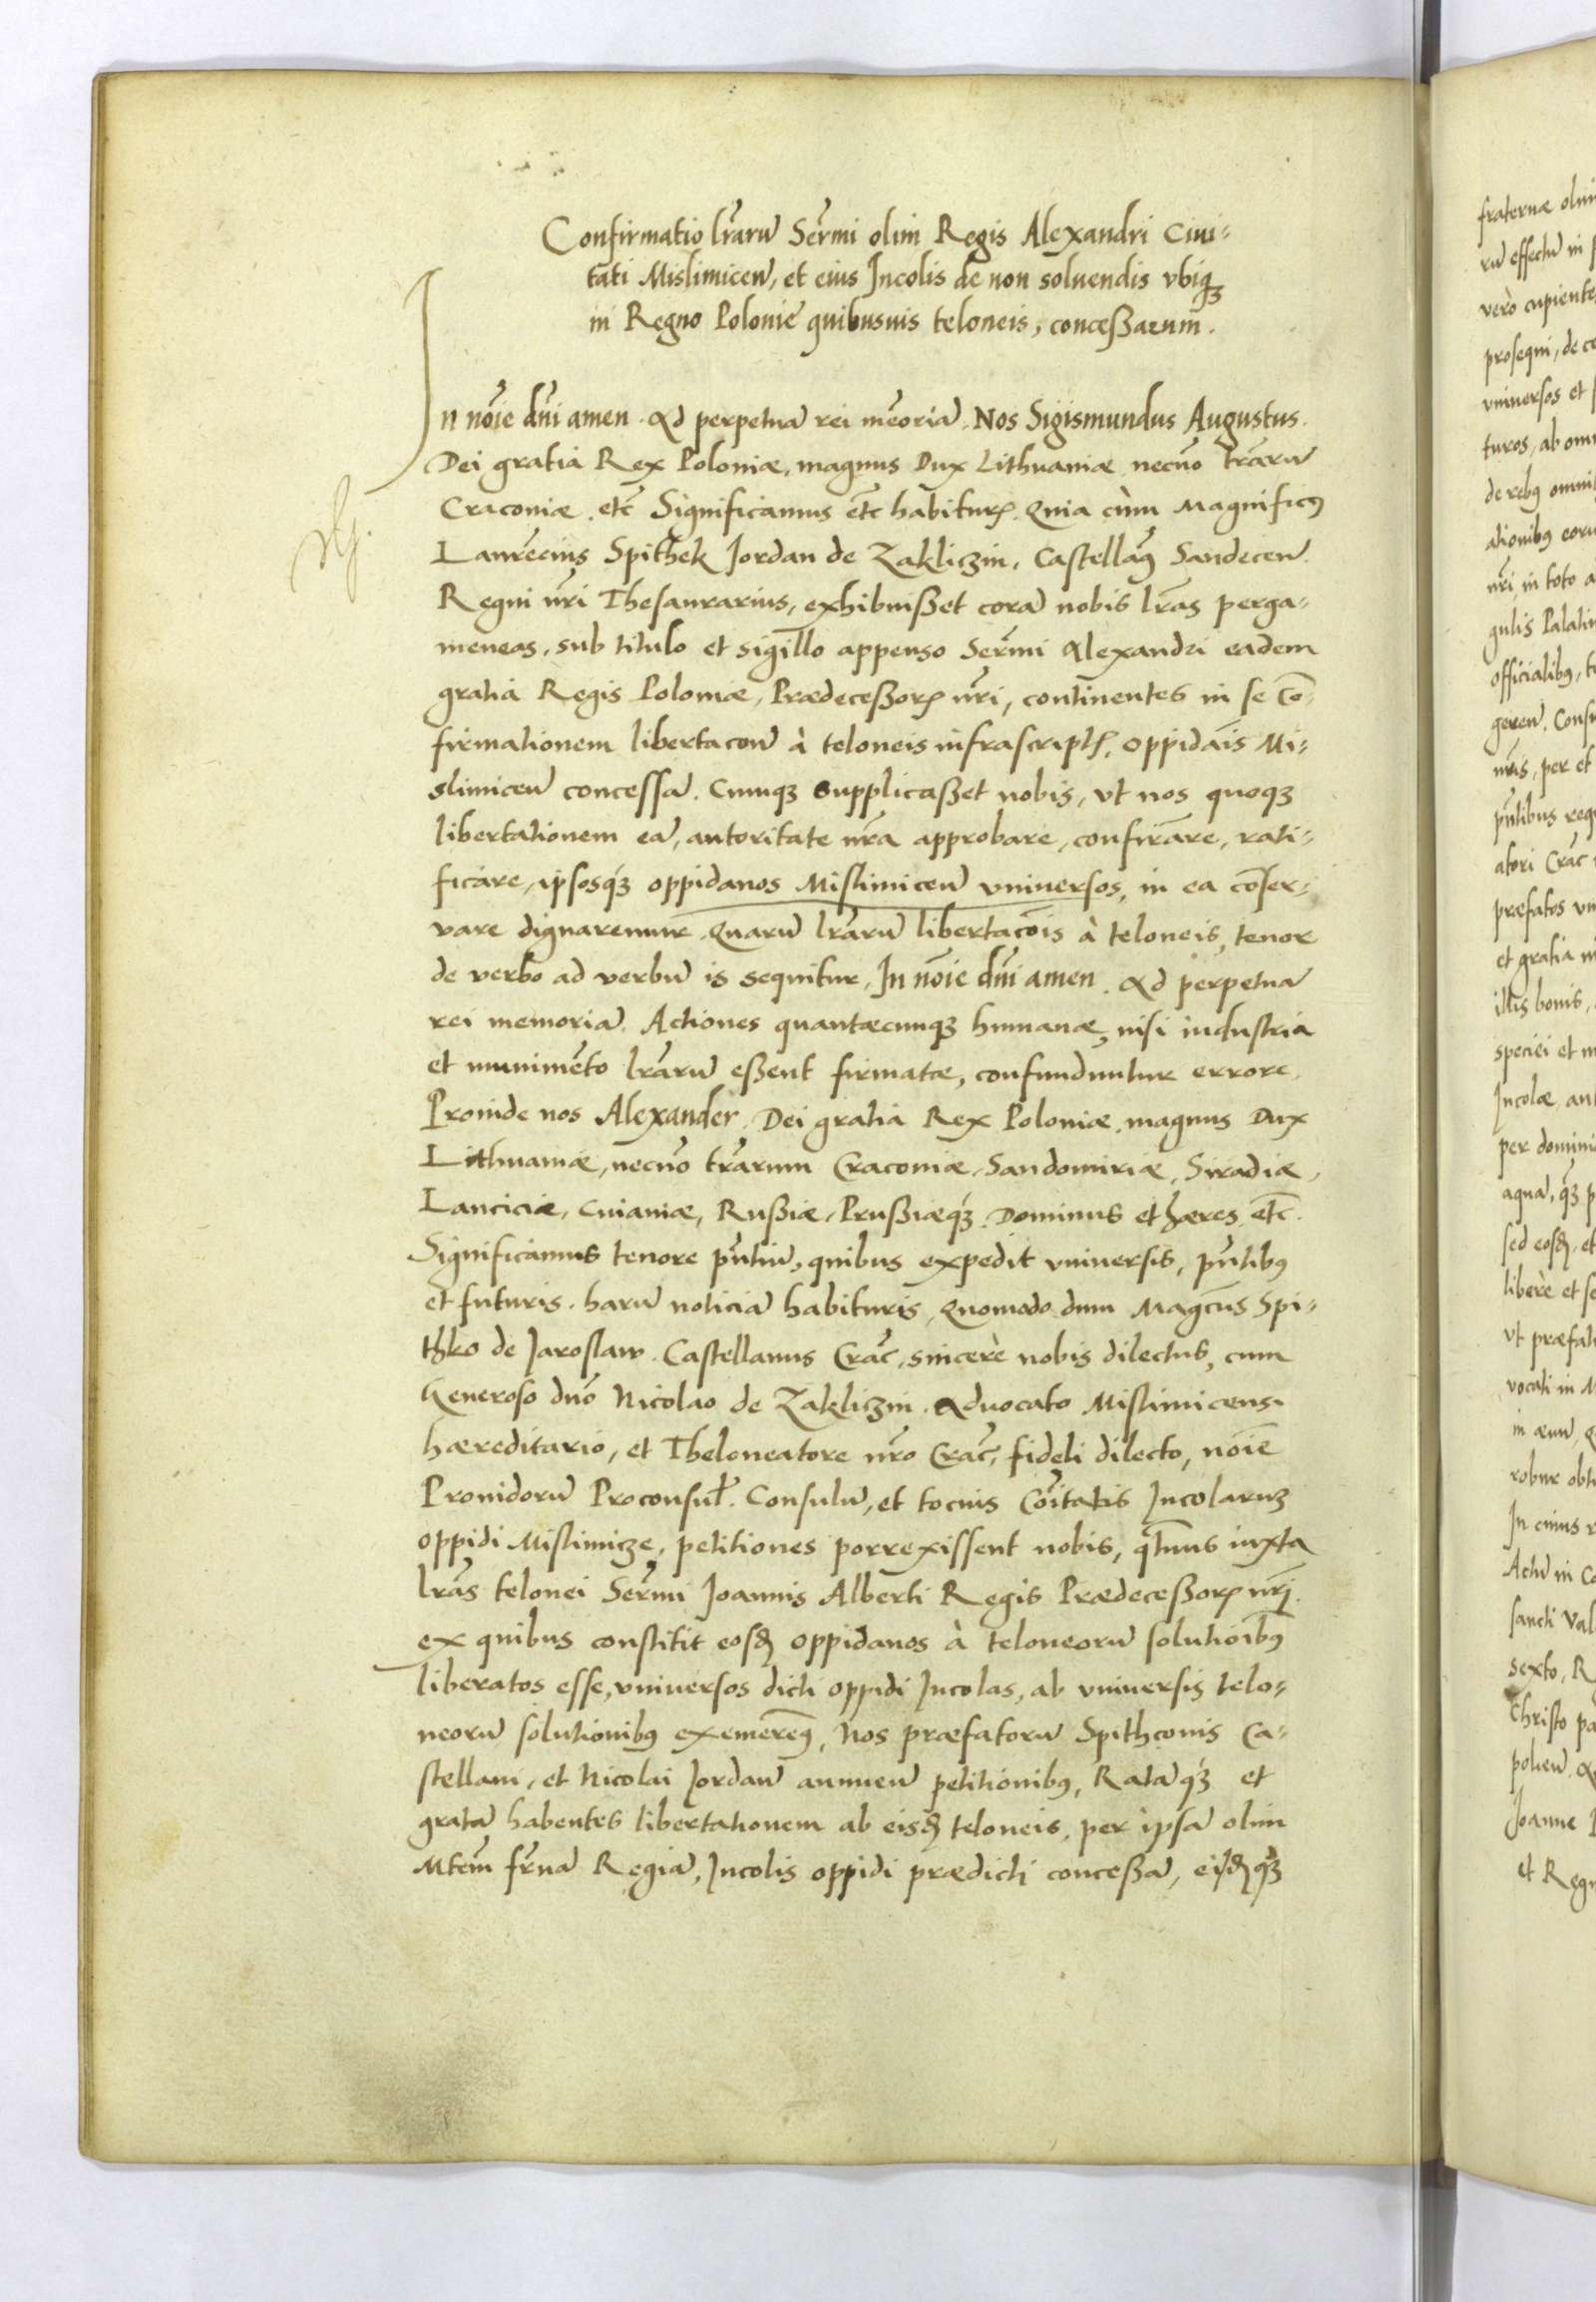 Confirmatio lrarũ Sermi olim Regis Alexandri Ciui-
tati Mislimiceñ, et eius Incolis de non soluendis vbiqȝ
in Regno Polonie quibusuis teloneis, conceßarum.
In noie dni amen. Ad perpetuã rei meoriã. Nos Sigismundus Augustus.
Dei gratia Rex Poloniæ, magnus Dux Lithuaniæ necno trarũ
Craconiæ etc Significamus etc habituꝝ. Quia cùm Magnificꝰ
Laurecius Spithek Jordan de Zakliczin, Castellaꝰ Sandeceñ
Regni nri Thesaurarius, exhibuißet corã nobis lras perga-
meneas, sub titulo et sigillo appenso Sermi Alexandri eadem
gratia Regis Poloniæ, Prædeceßoꝝ nri, continentes in se co-
firmationem libertacoñ à teloneis infrascriptꝭ, oppidais Mi-
slimiceñ concessã. Cumqȝ supplicaßet nobis, vt nos quoqȝ
libertationem eã, autoritate nra approbare, confirare, rati-
ficare, ipsosqȝ oppidanos Mislimiceñ vniuersos, in ea coser-
vare dignaremur. Quarũ lrarũ libertacois à teloneis, tenor
de verbo ad verbũ is sequitur. In noie dni amen. Ad perpetuã
rei memoriã. Actiones quantæcunqȝ humanæ, nisi industria
et munimeto lrarũ eßent firmatæ, confunduntur errore.
Proinde nos Alexander. Dei gratia Rex Poloniæ, magnus Dux
Lithuaniæ, necno trarum Craconiæ, Sandomiriæ, Siradiæ,
Lanciciæ, Cuiauiæ, Rußiæ, Prußiæqȝ. Dominus et hæres etc.
Significamus tenore pntiũ, quibus expedit vniuersis, pntibꝰ
et futuris. harũ noticiã habituris, Quomodo dum Magcus Spi-
thko de Jaroslaw. Castellanus Crac, sincerè nobis dilectus, cum
Generoso dno Nicolao de Zakliczin. Aduocato Mislimicens.
hæreditario, et Theloneatore nro Crac, fideli dilecto, noie
Prouidorũ Proconsul. Consulũ, et tocius Coitatis Incolaruȝ
oppidi Mislimicze, petitiones porrexissent nobis, qtenus iuxta
lras telonei Sermi Joannis Alberti Regis Prædeceßoꝝ nri.
ex quibus constitit eosꝺ oppidanos à teloneorũ solutioibꝰ
liberatos esse, vniuersos dicti oppidi Incolas, ab vniuersis telo-
neorũ solutionibꝰ exemeremꝰ, Nos præfatorũ Spithconis Ca-
stellani, et Nicolai Jordañ annueñ petitionibꝰ, Ratãqȝ et
gratã habentes libertationem ab eisꝺ teloneis, per ipsã olim
Mtem frnã Regiã, Incolis oppidi prædicti conceßã, eisꝺqȝ